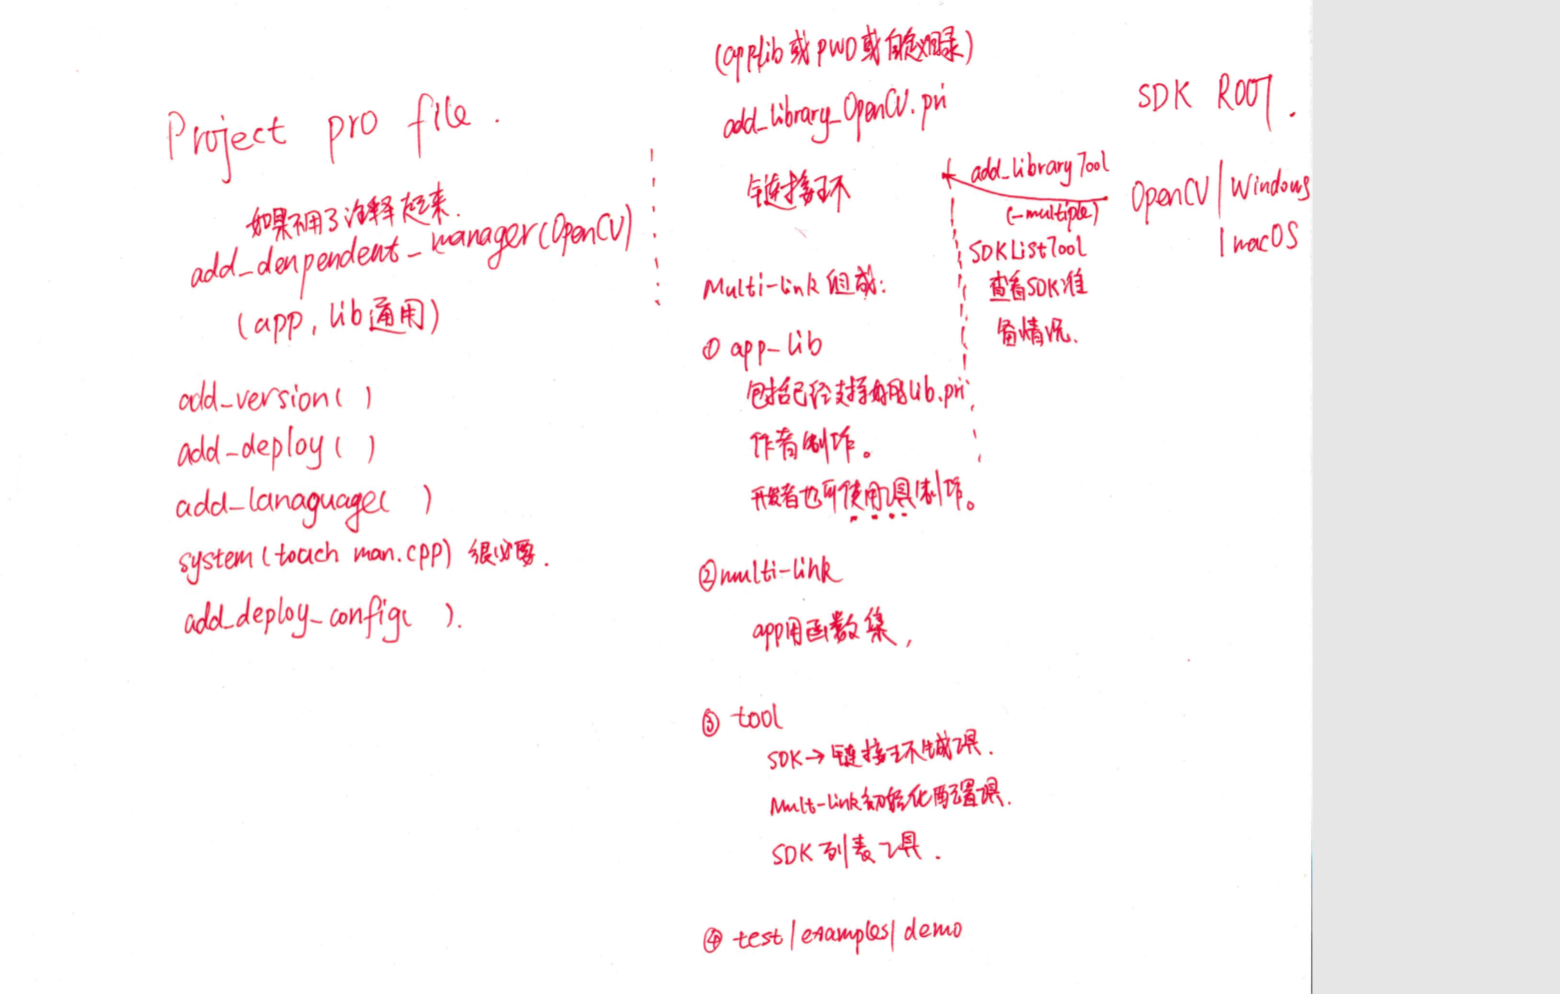 Project pro file.
如果不用了注释起来.
add_denpendent_manager(OpenCV)
(app, lib通用)
add_version( )
add_deploy( )
add_lanaguage( )
system(touch man.cpp) 很必要.
add_deploy_config( ).
(applib或PWD或自定义目录)
add_library_OpenCV.pri
链接环
Multi-link 组成:
① app-lib
包括已经支持好的lib.pri,
作者制作。
开发者也可使用工具制作。
②multi-link
app用函数集,
③ tool
SDK→链接环生成工具.
Mult-link初始化配置工具.
SDK 列表工具.
④ test/examples/demo
SDK ROOT.
add_libraryTool
(-multiple)
OpenCV | Windows
| macOS
SDKListTool
查看SDK准
备情况.